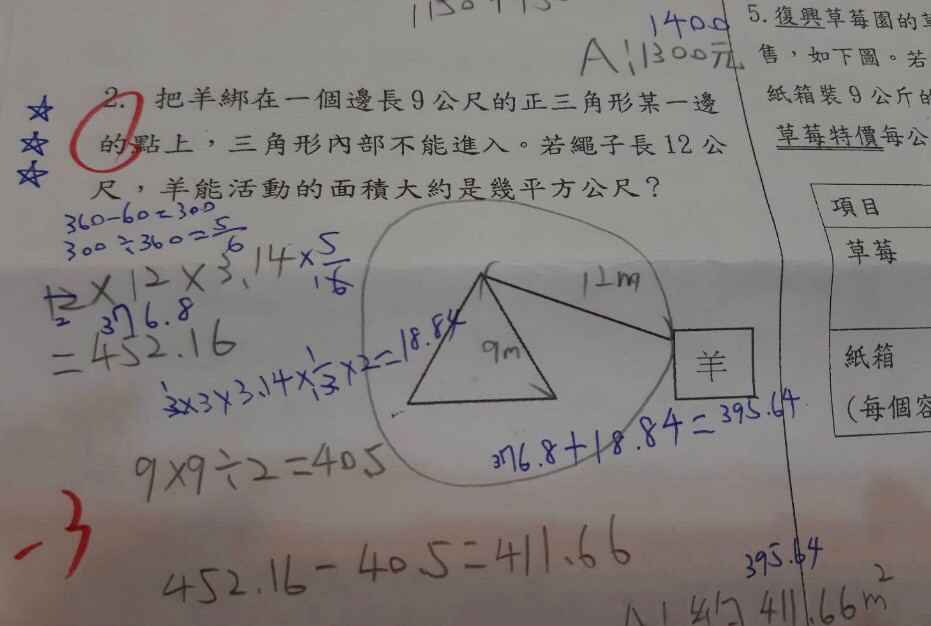 1400
A:1300元
2. 把羊綁在一個邊長9公尺的正三角形某一邊
的點上，三角形內部不能進入。若繩子長12公
尺，羊能活動的面積大約是幾平方公尺？
360-60=300
300÷360=5/6
12×12×3.14×5/6
2 376.8
=452.16
3×3×3.14×1/3×2=18.84
12m
9m
羊
376.8+18.84=395.64
9×9÷2=40.5
-3
452.16-40.5=411.66
395.64
411.66m²
5. 復興草莓園的
售，如下圖。若
紙箱裝9公斤的
草莓特價每公
項目
草莓
紙箱
(每個容